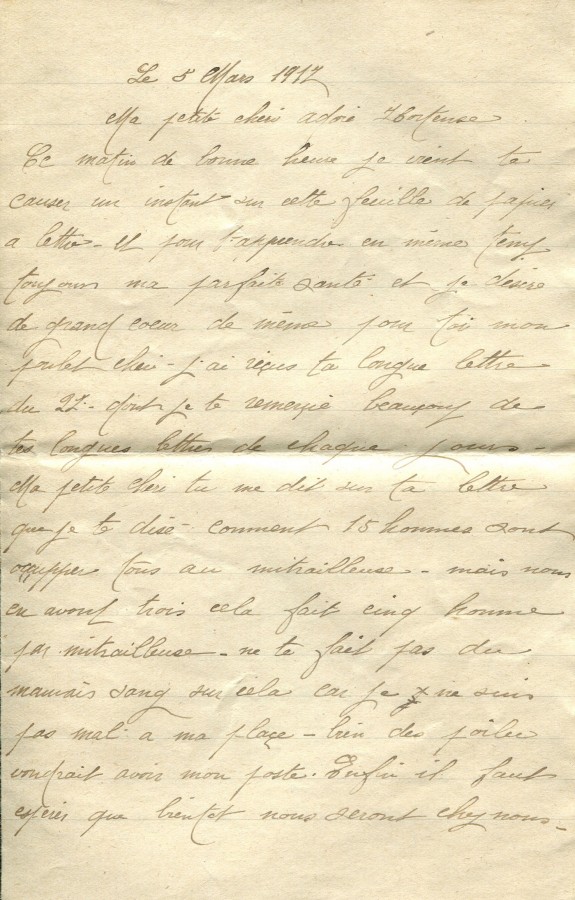 Le 5 Mars 1917
Ma petite cheri adoré Hortense
Ce matin de bonne heure je vient te
causer un instant sur cette feuille de papier
a lettre - et pour t'apprendre en même temp
toujours ma parfaite santé et je désire
de grand coeur de même pour toi mon
poulet cheri - j'ai reçus ta longue lettre
du 27 - dont je te remerçie beauçoup de
tes longues lettres de chaque jours -
Ma petite cheri tu me dit sur ta lettre
que je te dise comment 15 hommes sont
oqupper tous au mitrailleuse - mais nous
en avont trois cela fait cinq homme
par mitrailleuse - ne te fait pas du
mauvais sang sur cela car je ne suis
pas mal a ma plaçe - bien des poilu
voudrait avoir mon poste. Enfin il faut
esperer que bientot nous seront chez nous -